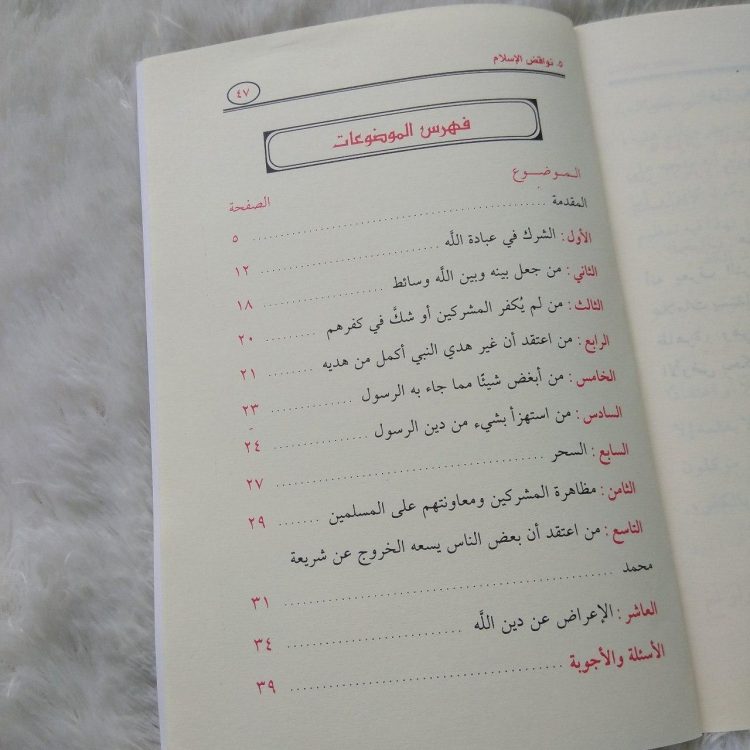 ٥. نواقض الإسلام ٤٧
فهرس الموضوعات
الموضوع الصفحة
المقدمة ........ ٥
الأول : الشرك في عبادة اللَّه ........ ١٢
الثاني : من جعل بينه وبين اللَّه وسائط ........ ١٨
الثالث : من لم يُكفر المشركين أو شكَّ في كفرهم ........ ٢٠
الرابع : من اعتقد أن غير هدي النبي أكمل من هديه ........ ٢١
الخامس : من أبغض شيئًا مما جاء به الرسول ........ ٢٣
السادس : من استهزأ بشيء من دين الرسول ........ ٢٤
السابع : السحر ........ ٢٧
الثامن : مظاهرة المشركين ومعاونتهم على المسلمين ........ ٢٩
التاسع : من اعتقد أن بعض الناس يسعه الخروج عن شريعة
محمد ........ ٣١
العاشر : الإعراض عن دين اللَّه ........ ٣٤
الأسئلة والأجوبة ........ ٣٩